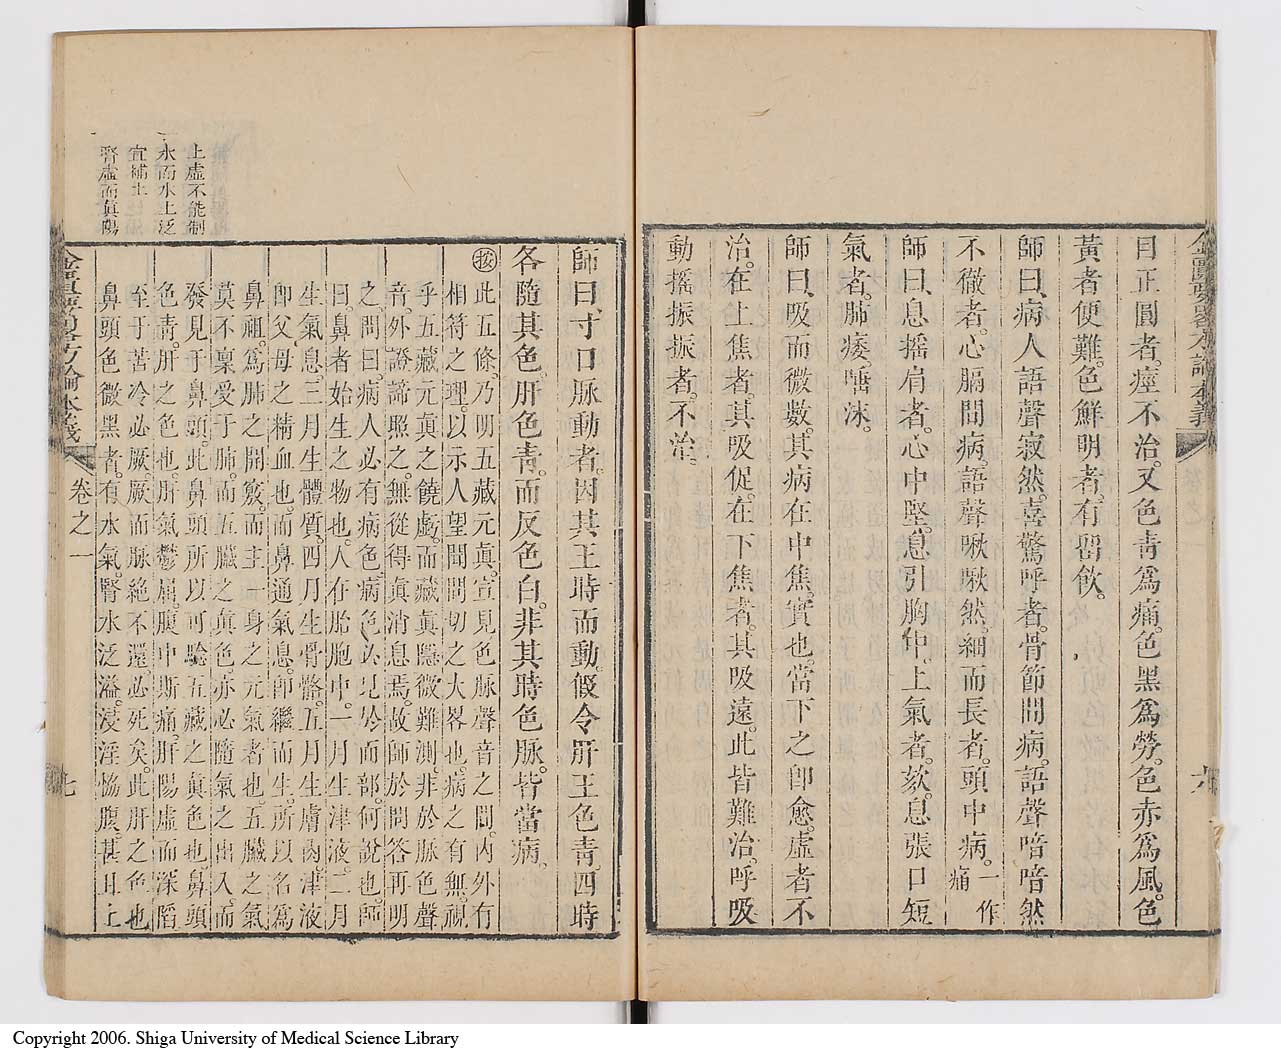 目正圓者。痙不治。又色青爲痛。色黑爲勞。色赤爲風。色
黃者便難。色鮮明者。有畱飲。
師曰、病人語聲寂然。喜驚呼者。骨節間病。語聲喑喑然
不徹者。心膈間病。語聲啾啾然。細而長者。頭中病。一作痛
師曰、息搖肩者。心中堅。息引胸中。上氣者。欬。息張口短
氣者。肺痿。唾沫。
師曰、吸而微數。其病在中焦。實也。當下之卽愈。虛者不
治。在上焦者。其吸促。在下焦者。其吸遠。此皆難治。呼吸
動搖振振者。不治。
六
師曰、寸口脈動者。因其王時而動。假令肝王色青。四時
各隨其色。肝色青。而反色白。非其時色脈。皆當病。
按此五條。乃明五藏元眞。宣見色脈聲音之間。內外有
相符之理。以示人望聞問切之大畧也。病之有無。視
乎五藏元眞之饒虧。而藏眞隱微難測。非於脈色聲
音。外證諦照之。無從得眞消息焉。故師於問答再明
之。問曰病人必有病色。病色必見於面部。何說也。師
曰。鼻者始生之物也。人在胎胞中。一月生津液。二月
生氣息。三月生體質。四月生骨骼。五月生膚肉。津液
卽父母之精血也。而鼻通氣息。卽繼而生。所以名爲
鼻祖。爲肺之開竅。而主一身之元氣者也。五臟之氣
莫不稟受于肺。而五臟之眞色。亦必隨氣之出入。而
發見于鼻頭。此鼻頭所以可驗五藏之眞色也。鼻頭
色青。肝之色也。肝氣鬱屈。腹中斯痛。肝陽虛而深陷
至于苦冷必厥。厥而脈絕不還。必死矣。此肝之色也
鼻頭色微黑者。有水氣。腎水泛溢。浸淫脇腹。甚且上
土虛不能制
水而水上泛
宜補土
腎虛而眞陽
金匱要畧方論本義
卷之一
七
Copyright 2006. Shiga University of Medical Science Library